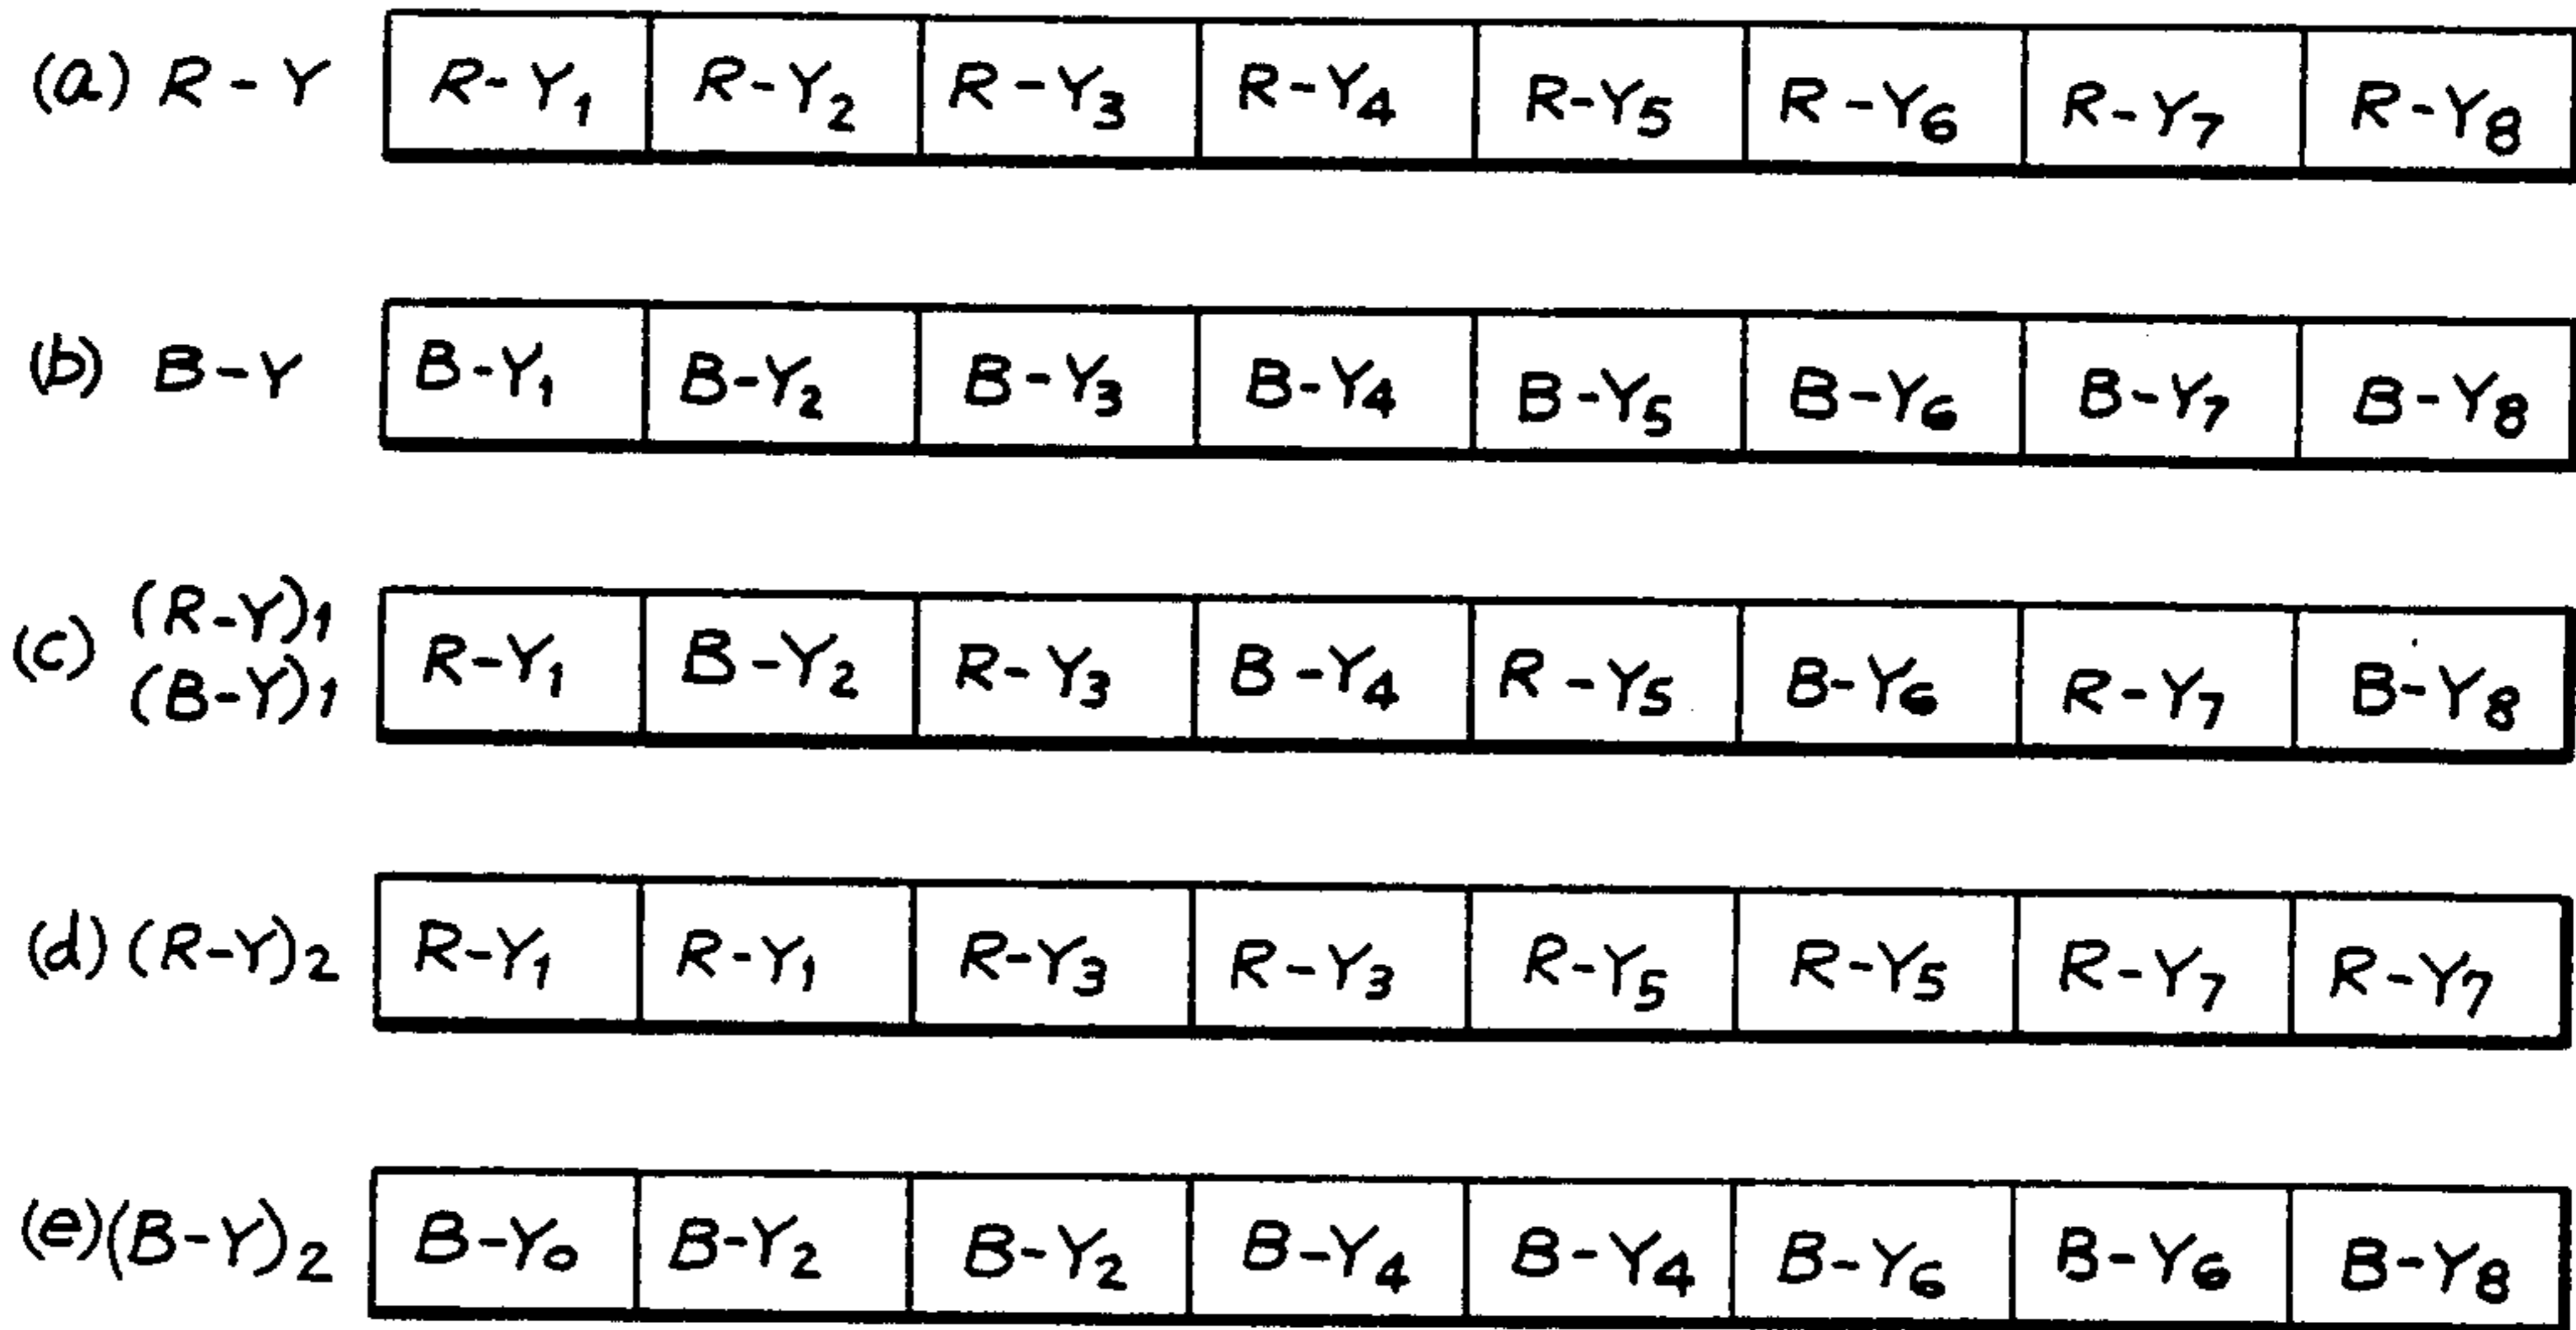 (a) R-Y R-Y₁ R-Y₂ R-Y₃ R-Y₄ R-Y₅ R-Y₆ R-Y₇ R-Y₈
(b) B-Y B-Y₁ B-Y₂ B-Y₃ B-Y₄ B-Y₅ B-Y₆ B-Y₇ B-Y₈
(c) (R-Y)₁
(B-Y)₁ R-Y₁ B-Y₂ R-Y₃ B-Y₄ R-Y₅ B-Y₆ R-Y₇ B-Y₈
(d) (R-Y)₂ R-Y₁ R-Y₁ R-Y₃ R-Y₃ R-Y₅ R-Y₅ R-Y₇ R-Y₇
(e) (B-Y)₂ B-Y₀ B-Y₂ B-Y₂ B-Y₄ B-Y₄ B-Y₆ B-Y₆ B-Y₈